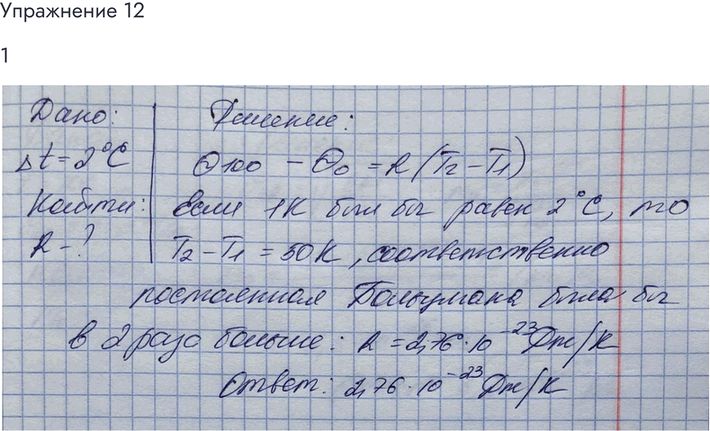 Упражнение 12
1
Дано: Решение:
Δt = 2°C Θ100 − Θ0 = k (T2 − T1)
Найти: Если 1К был бы равен 2°C, то
k − ? T2 − T1 = 50К, соответственно
постоянная Больцмана была бы
в 2 раза больше: k = 2,76 · 10⁻²³ Дж/К
Ответ: 2,76 · 10⁻²³ Дж/К